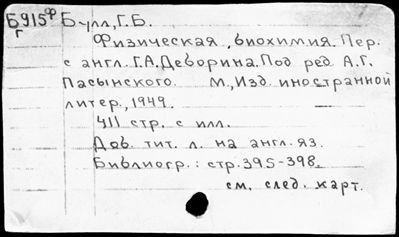 Б915ф Булл, Г.Б.
г
Физическая, биохимия. Пер.
с англ. Г.А, Деворина. Под ред А.Г.
Пасынского. М., Изд. иностранной
литер., 1949.
411 стр. с илл.
Доб. тит. л. на англ. яз.
Библиогр.: стр. 395-398.
см. след. карт.